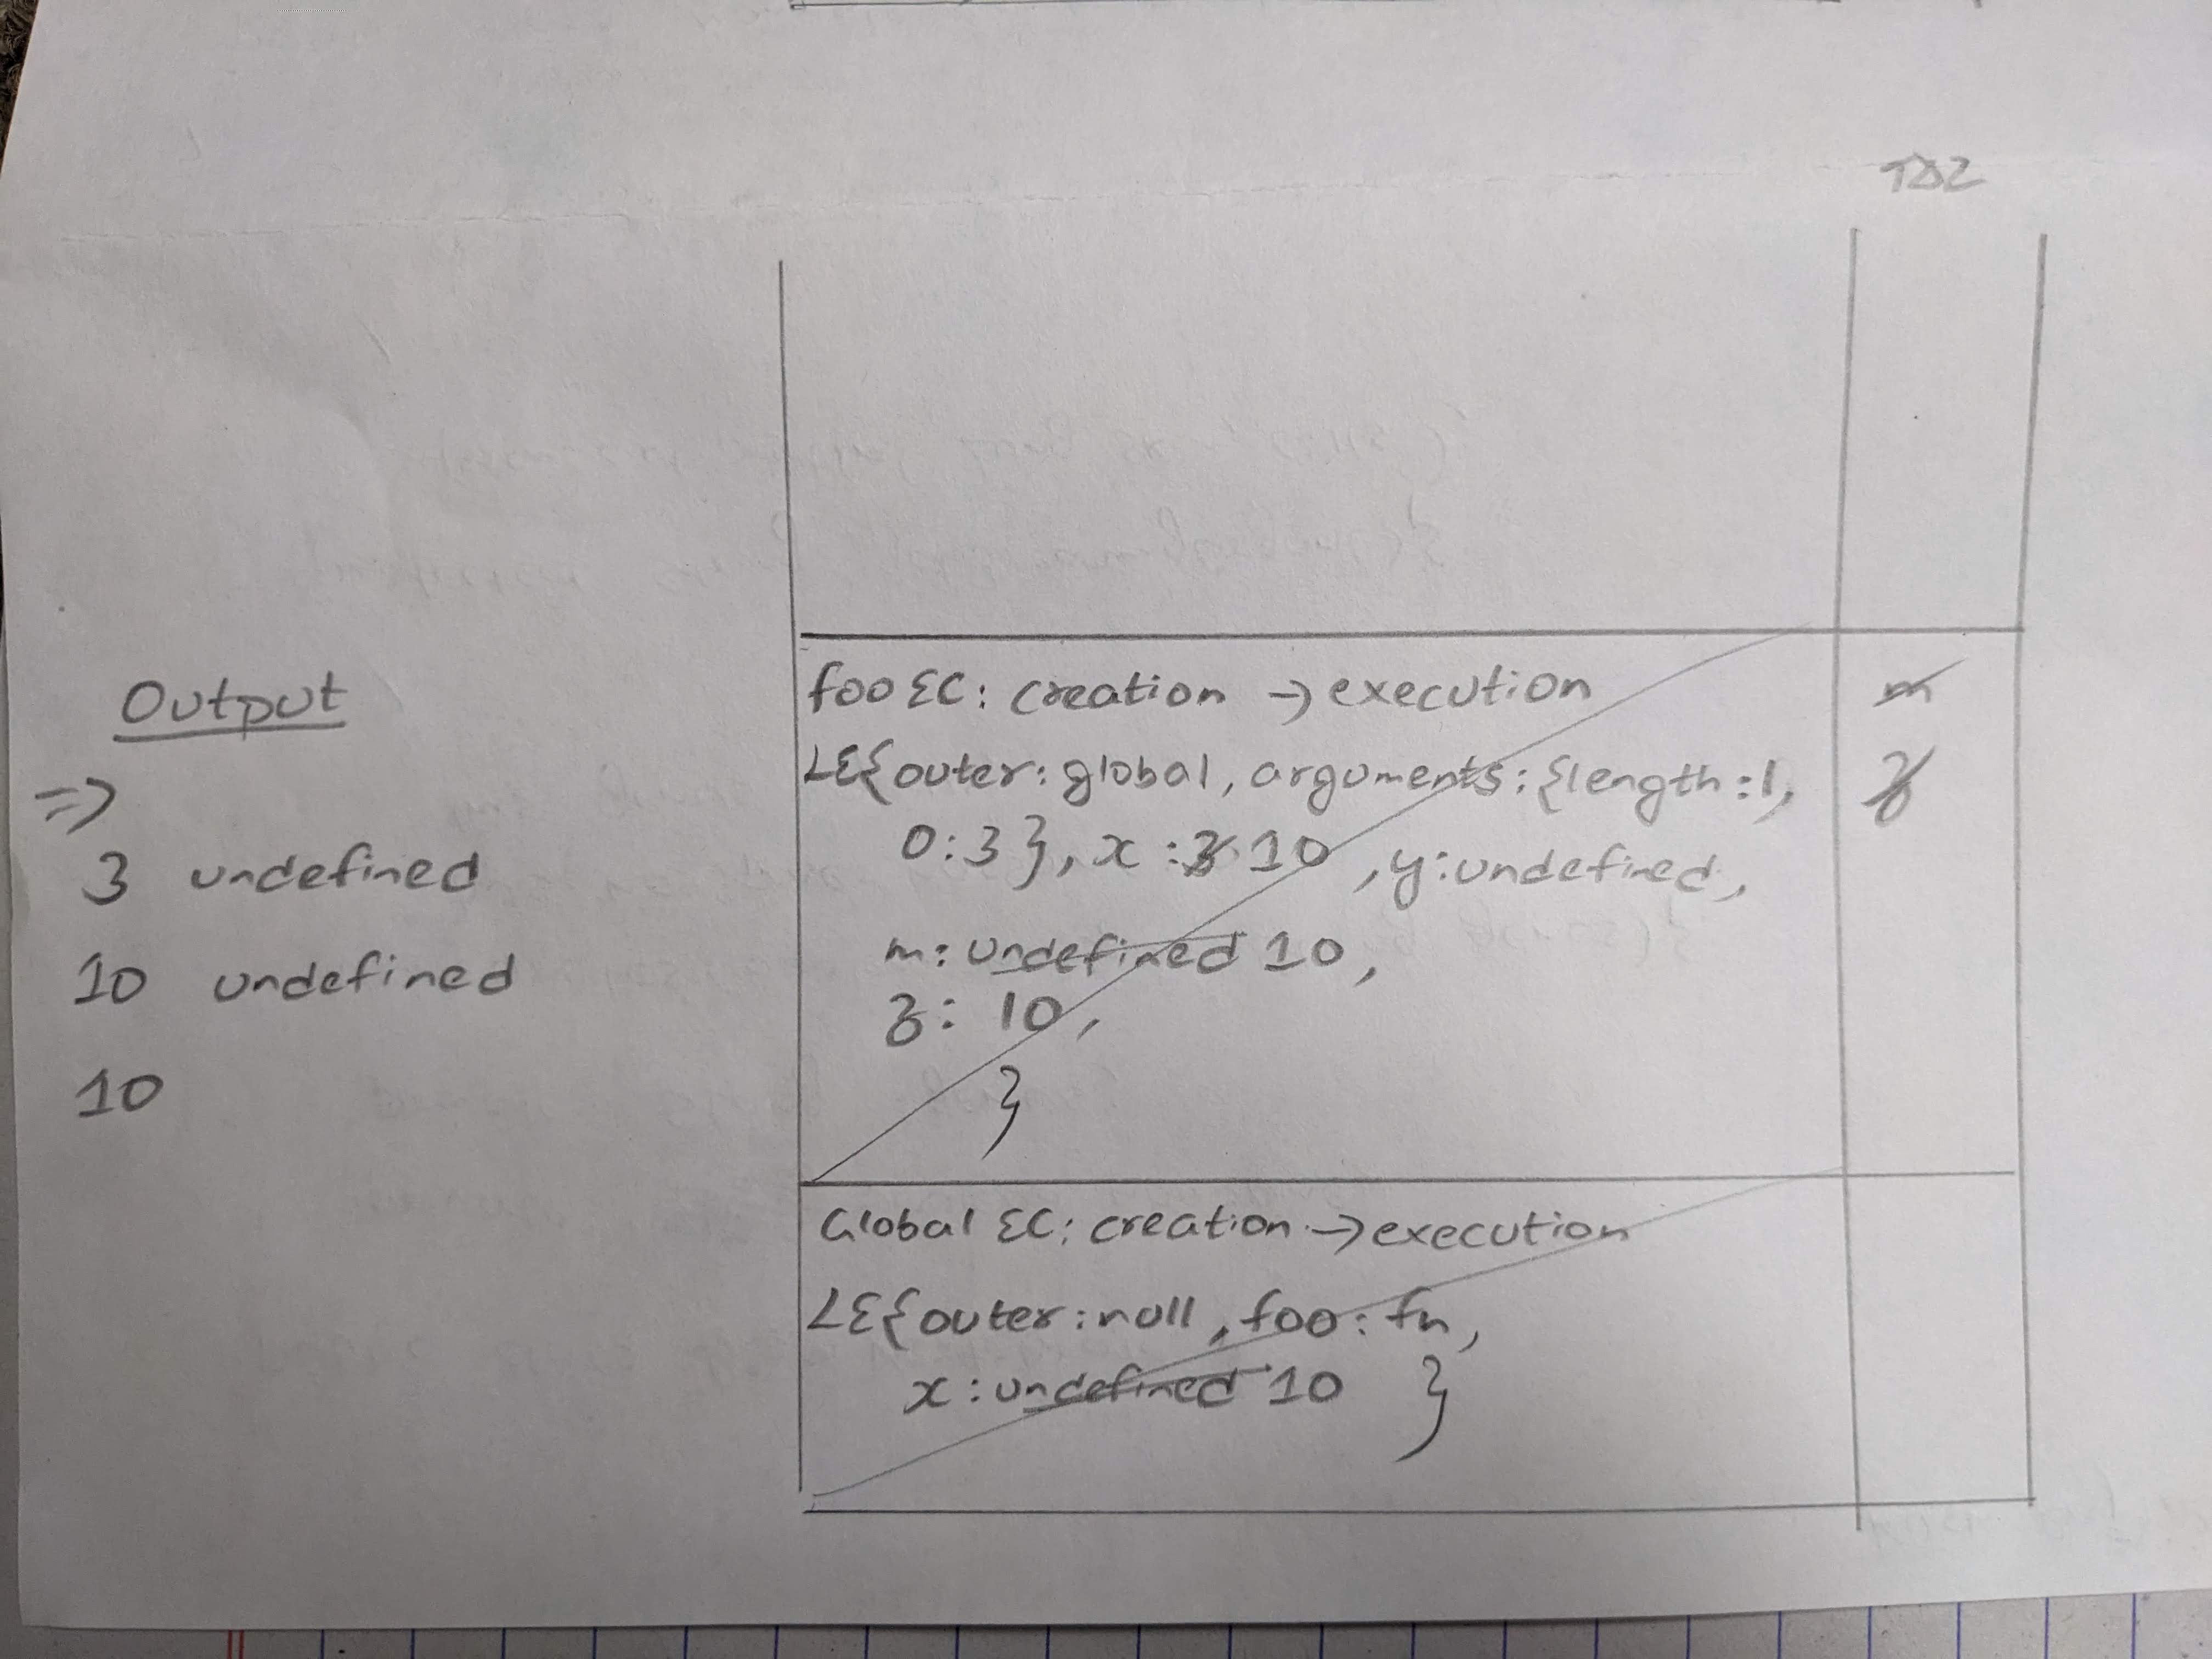 TDZ
Output
=>
3 undefined
10 undefined
10
foo EC: creation → execution
LE{outer: global, arguments: {length: 1,
0:3}, x: 3 10, y: undefined,
m: undefined 10,
z: 10,
}
m
z
Global EC: creation → execution
LE{outer: null, foo: fn,
x: undefined 10 }